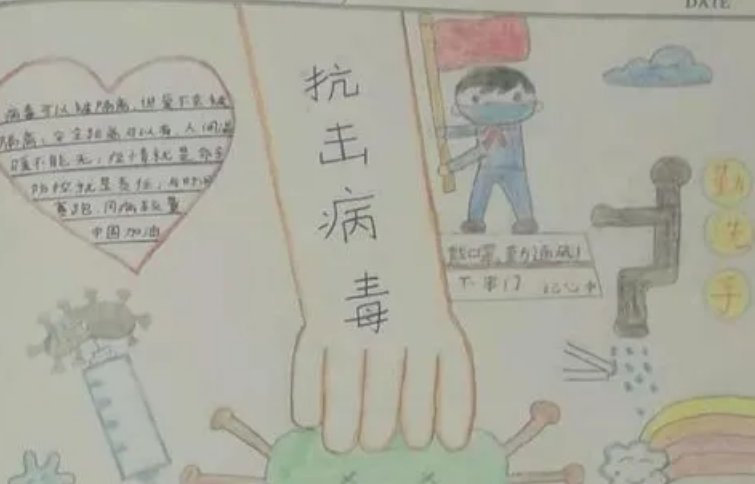 DATE
病毒可以被隔离,但爱不会被
隔离,安全距离可以有,人间温
暖不能无,疫情就是命令
防控就是责任,与时间
赛跑,同病毒较量
中国加油
抗击病毒
戴口罩,勤通风!
不串门 记心中
勤洗手